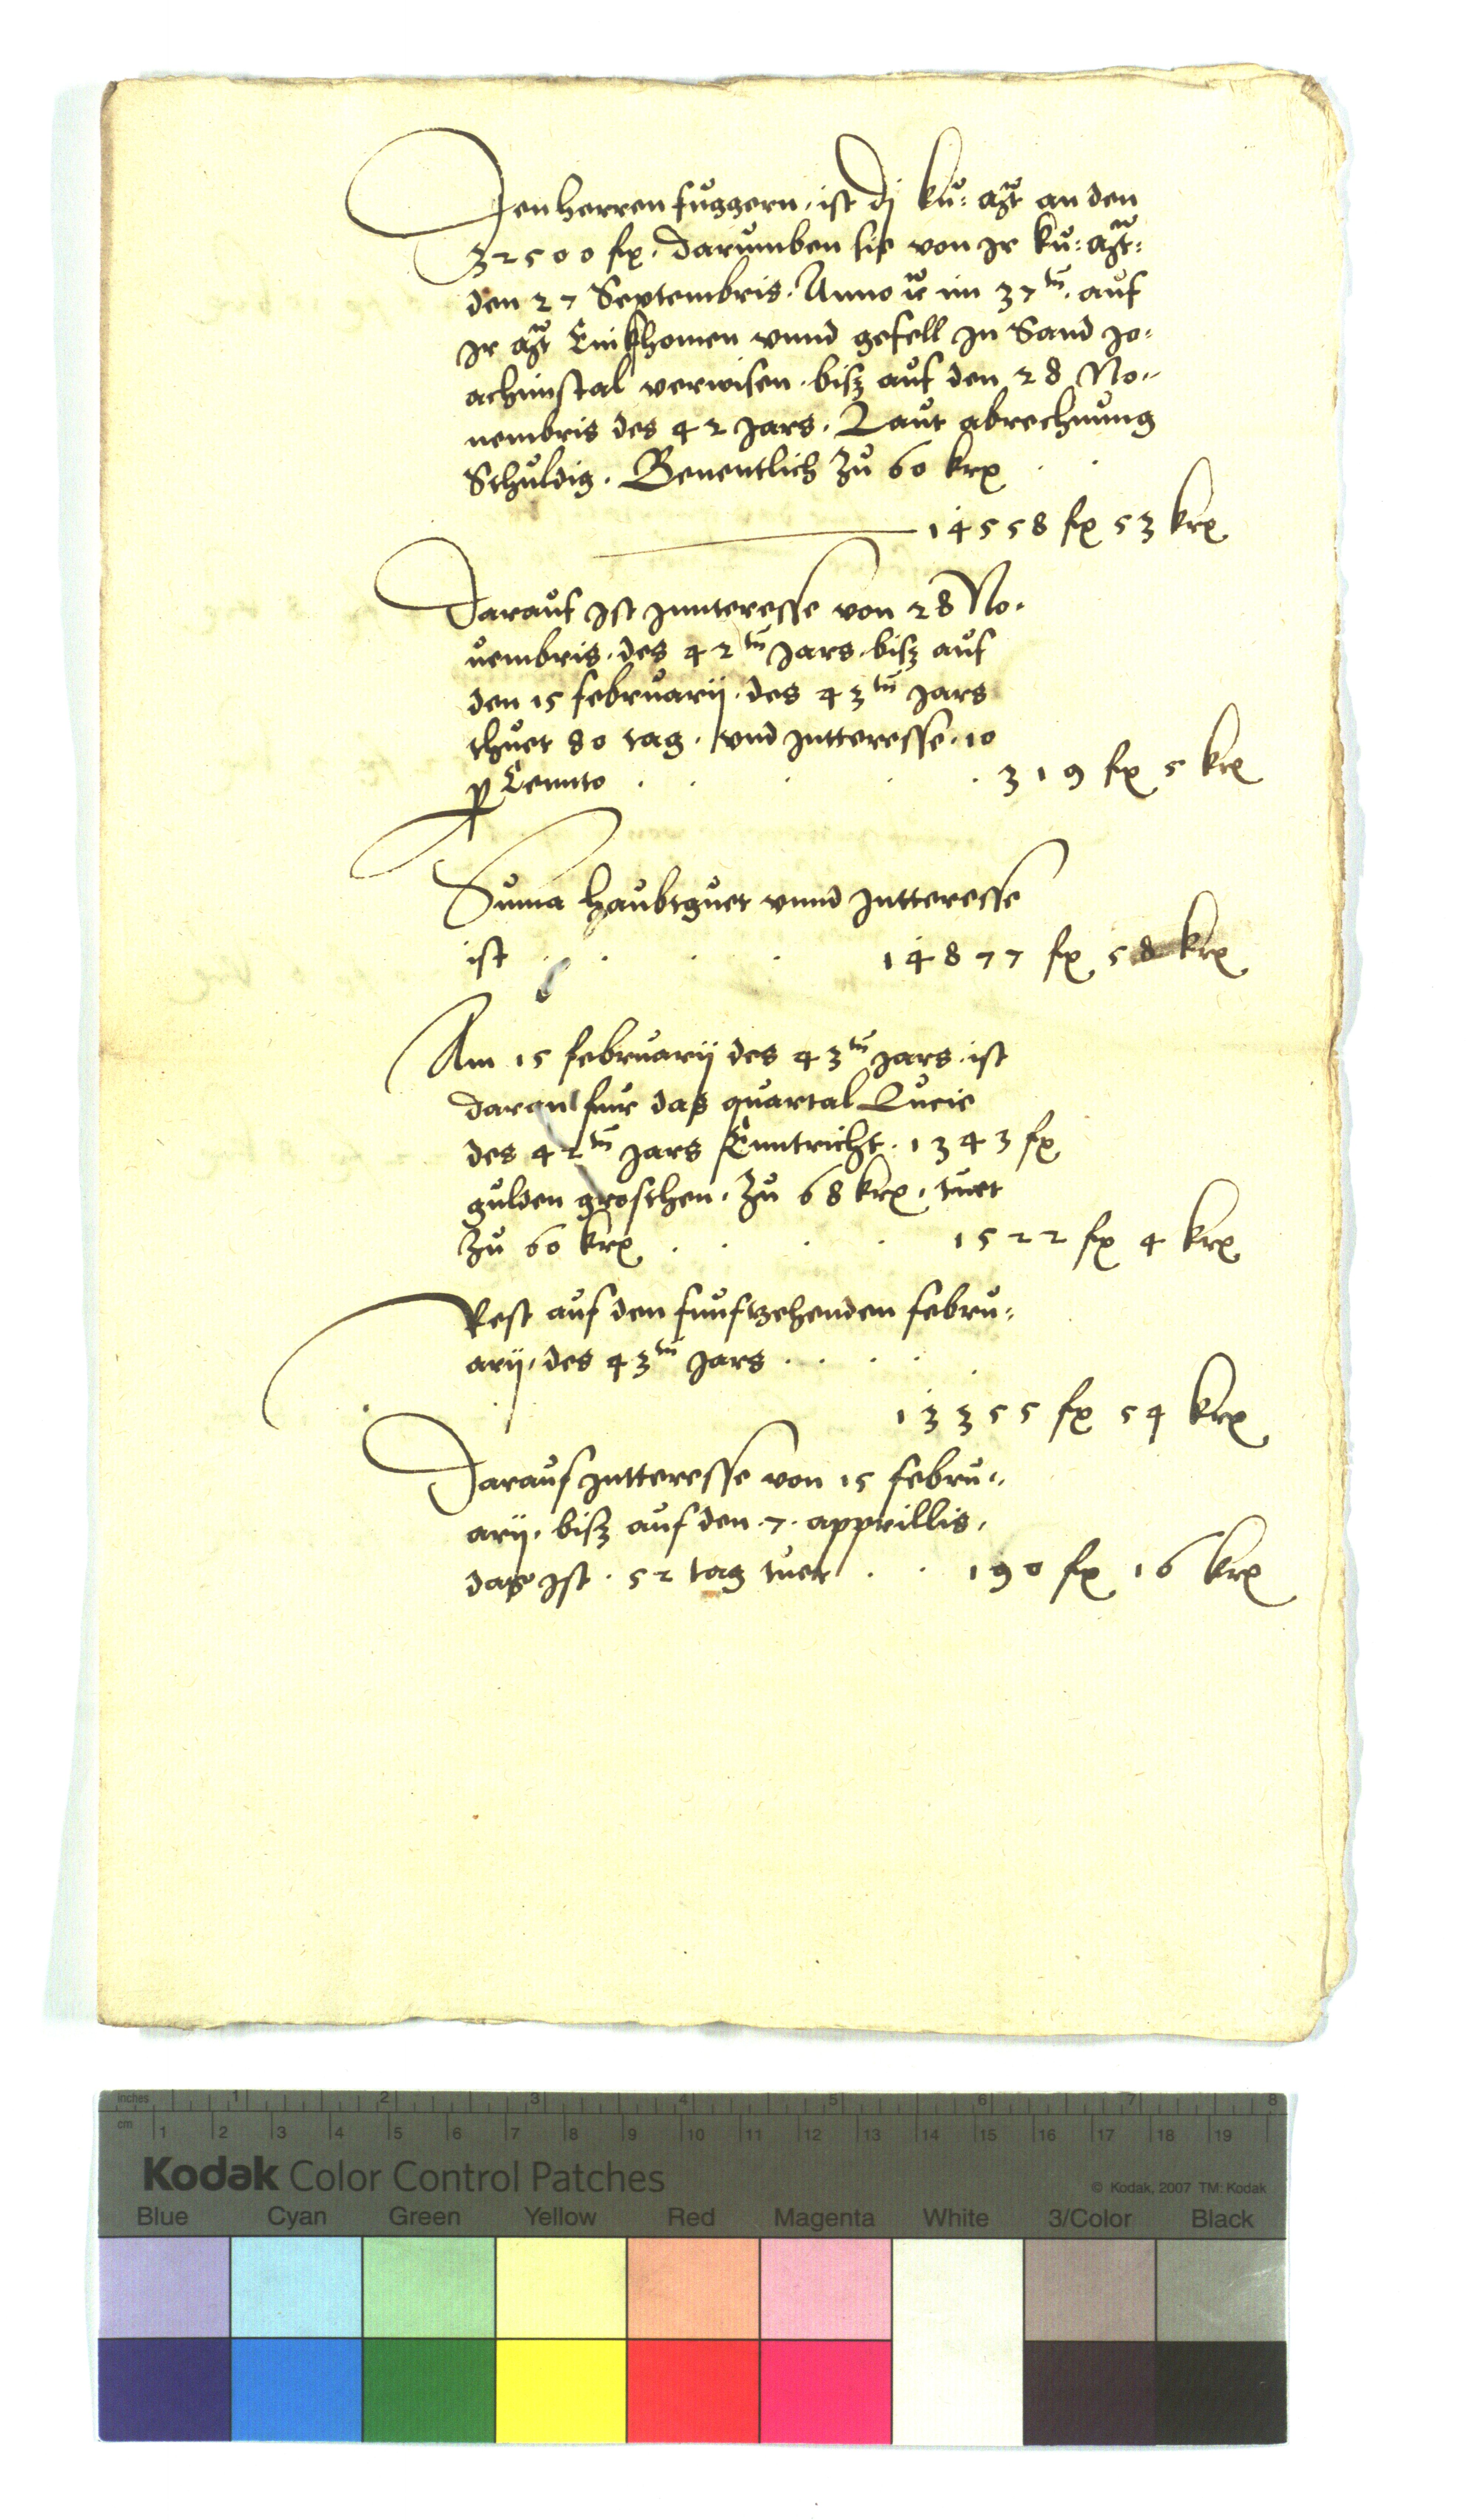 Den herren fuggern, ist dj ku: Mt an den
32500 fl. darumben sie von Ir ku: Mt:
den 27 Septembris. Anno ꝛc im 37tn. auf
Ir Mt Einkhomen vnnd gefell In Sand Jo:
achimstal verwisen. bisz auf den 28 No:
uembris des 42 Jars. Laut abrechnung
Schuldig. Benentlich Zu 60 krx . .
14558 fl 53 krx
Darauf Ist Innteresse von 28 No.
uembris. des 42tn Jars. bisz auf
den 15 februarij. des 43tn Jars
thuet 80 tag. vnd Intteresse. 10
p Cennto . . . . . 319 fl 5 krx
Suma haubtguet vnnd Intteresse
ist . . . . 14877 fl 58 krx
Am 15 februarij des 43tn Jars. ist
daran fur das quartal Lucie
des 42tn Jars Enntricht. 1343 fl
gulden groschen. Zu 68 krx. tuet
Zu 60 krx . . . . 1522 fl 4 krx
Rest auf den funftzehenden febru:
arij. des 43tn Jars . . . . .
13355 fl 54 krx
Darauf Intteresse von 15 febru:
arij. bisz auf den .7. apprillis.
das Ist . 52 tag tuet . . 190 fl 16 krx
inches 1 2 3 4 5 6 7 8
cm 1 2 3 4 5 6 7 8 9 10 11 12 13 14 15 16 17 18 19
Kodak Color Control Patches © Kodak, 2007 TM: Kodak
Blue Cyan Green Yellow Red Magenta White 3/Color Black